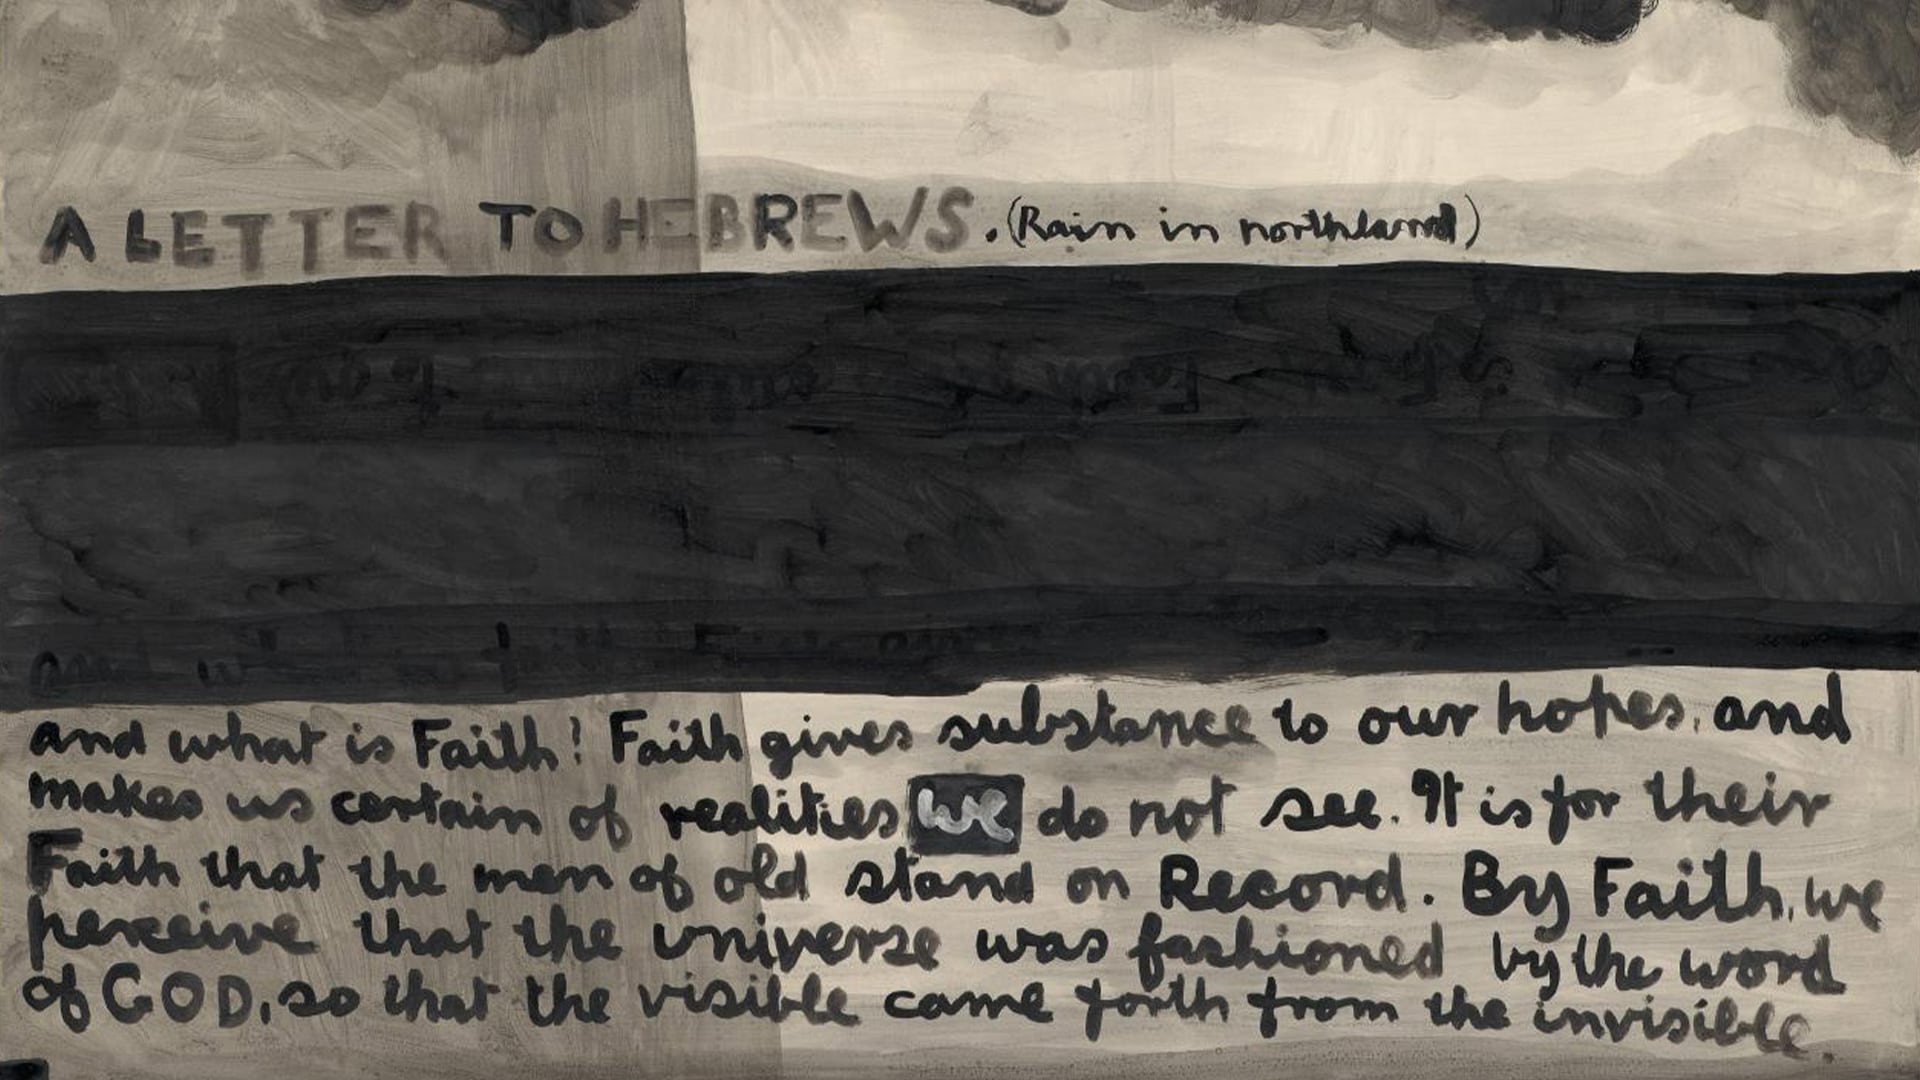 A LETTER TO HEBREWS. (Rain in northland)
and what is Faith? Faith gives substance to our hopes, and
makes us certain of realities we do not see. It is for their
Faith that the men of old stand on Record. By Faith, we
perceive that the universe was fashioned by the word
of GOD, so that the visible came forth from the invisible.